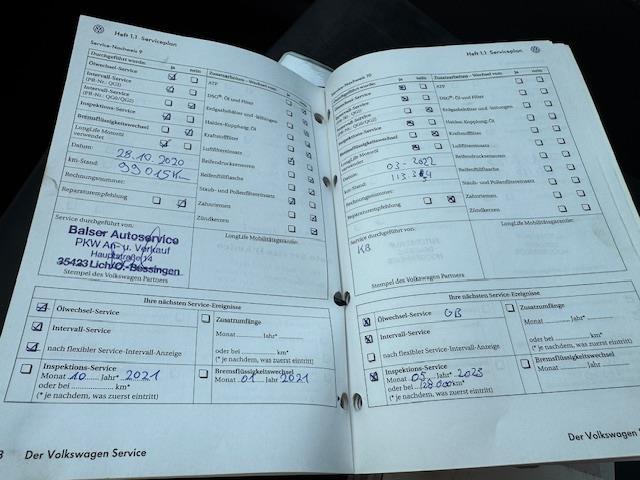 Heft 1.1 Serviceplan
Service-Nachweis 9
Durchgeführt wurde: ja nein
Ölwechsel-Service
Intervall-Service
(PR-Nr.: QG1)
Intervall-Service
(PR-Nr.: QG0/QG2)
Inspektions-Service
Bremsflüssigkeitswechsel
LongLife Motoröl
verwendet
Datum: 28.10.2020
km-Stand: 99015K
Rechnungsnummer:
Reparaturempfehlung
Zusatzarbeiten - Wechsel von: ja nein
ATF
DSG®: Öl und Filter
Erdgasbehälter und -leitungen
Haldex-Kupplung: Öl
Kraftstofffilter
Luftfiltereinsatz
Reifendruckssensoren
Reifendichtmittelflasche
Staub- und Pollenfiltereinsatz
Zahnriemen
Zündkerzen
Service durchgeführt von:
Balser Autoservice
PKW An- u. Verkauf
Hauptstraße 14
35423 Lich/O.-Bessingen
Stempel des Volkswagen Partners
LongLife Mobilitätsgarantie:
Ihre nächsten Service-Ereignisse
Ölwechsel-Service
Intervall-Service
nach flexibler Service-Intervall-Anzeige
Zusatzumfänge
Monat Jahr*
oder bei km*
(* je nachdem, was zuerst eintritt)
Inspektions-Service
Monat 10 Jahr* 2021
oder bei km*
(* je nachdem, was zuerst eintritt)
Bremsflüssigkeitswechsel
Monat 01 Jahr 2021
Der Volkswagen Service
Heft 1.1 Serviceplan
10
ja nein
Service
Service
LongLife Motoröl
verwendet
03-2022
Rechnungsnummer:
Reparaturempfehlung
Zusatzarbeiten - Wechsel von: ja nein
ATF
DSG®: Öl und Filter
Erdgasbehälter und -leitungen
Haldex-Kupplung: Öl
Kraftstofffilter
Luftfiltereinsatz
Reifendruckssensoren
Reifendichtmittelflasche
Staub- und Pollenfiltereinsatz
Zahnriemen
Zündkerzen
Service durchgeführt von:
KB
Stempel des Volkswagen Partners
LongLife Mobilitätsgarantie:
Ihre nächsten Service-Ereignisse
Ölwechsel-Service GB
Intervall-Service
nach flexibler Service-Intervall-Anzeige
Zusatzumfänge
Monat Jahr*
oder bei km*
(* je nachdem, was zuerst eintritt)
Inspektions-Service
Monat 05 Jahr* 2023
oder bei 128.000 km*
(* je nachdem, was zuerst eintritt)
Bremsflüssigkeitswechsel
Monat Jahr
Der Volkswagen